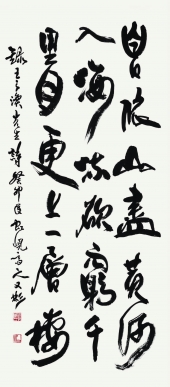 白日依山盡黃河
入海流欲窮千
里目更上一層樓
錄王之渙先生詩癸卯